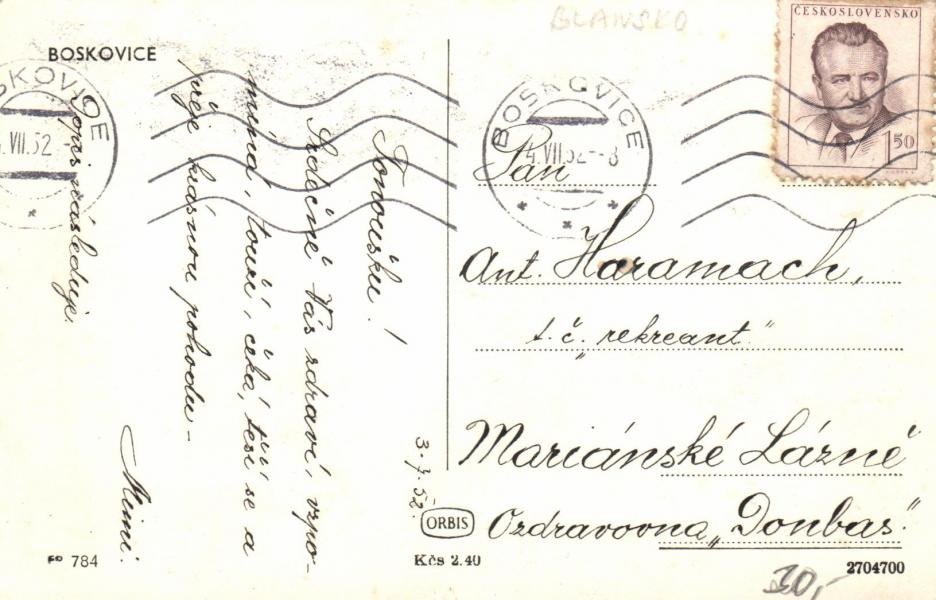 BLANSKO
ČESKOSLOVENSKO
1 50
BOSKOVICE
BOSKOVICE
4.VII.52 -8
BOSKOVICE
VII.52
Tonoušku!
Srdečně Vás zdraví, vzpo-
míná, touží, čeká, těší se a
přeje krásnou pohodu -
Mimi.
Dopis následuje.
3.7.52.
Pán
Ant. Haramach,
t. č. „rekreant"
Mariánské Lázně
Ozdravovna „Donbas"
ORBIS
Kčs 2.40
FO 784
2704700
30,-